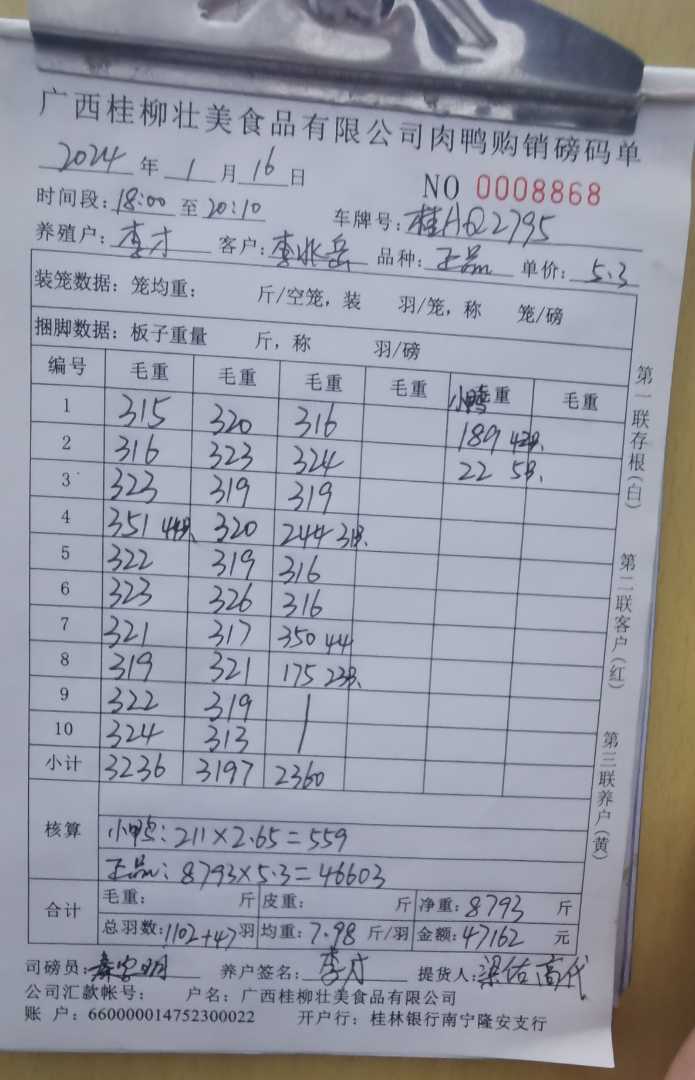 广西桂柳壮美食品有限公司肉鸭购销磅码单
2024 年 1 月 16 日 NO 0008868
时间段: 18:00 至 20:10 车牌号: 桂AQ2795
养殖户: 李才 客户: 李兆岳 品种: 正品 单价: 5.3
装笼数据: 笼均重: 斤/空笼, 装 羽/笼, 称 笼/磅
捆脚数据: 板子重量 斤, 称 羽/磅
编号 毛重 毛重 毛重 毛重 小鸭重 毛重
1 315 320 316 189 42只
2 316 323 324 22 5只
3 323 319 319
4 351 44只 320 244 31只
5 322 319 316
6 323 326 316
7 321 317 350 44
8 319 321 175 22只
9 322 319
10 324 313
小计 3236 3197 2360
核算
小鸭: 211×2.65=559
正品: 8793×5.3=46603
合计 毛重: 斤 皮重: 斤 净重: 8793 斤
总羽数: 1102+47 羽 均重: 7.98 斤/羽 金额: 47162 元
司磅员: 养户签名: 李才 提货人:
公司汇款帐号: 户名: 广西桂柳壮美食品有限公司
账 户: 660000014752300022 开户行: 桂林银行南宁隆安支行
第一联存根(白)
第二联客户(红)
第三联养户(黄)